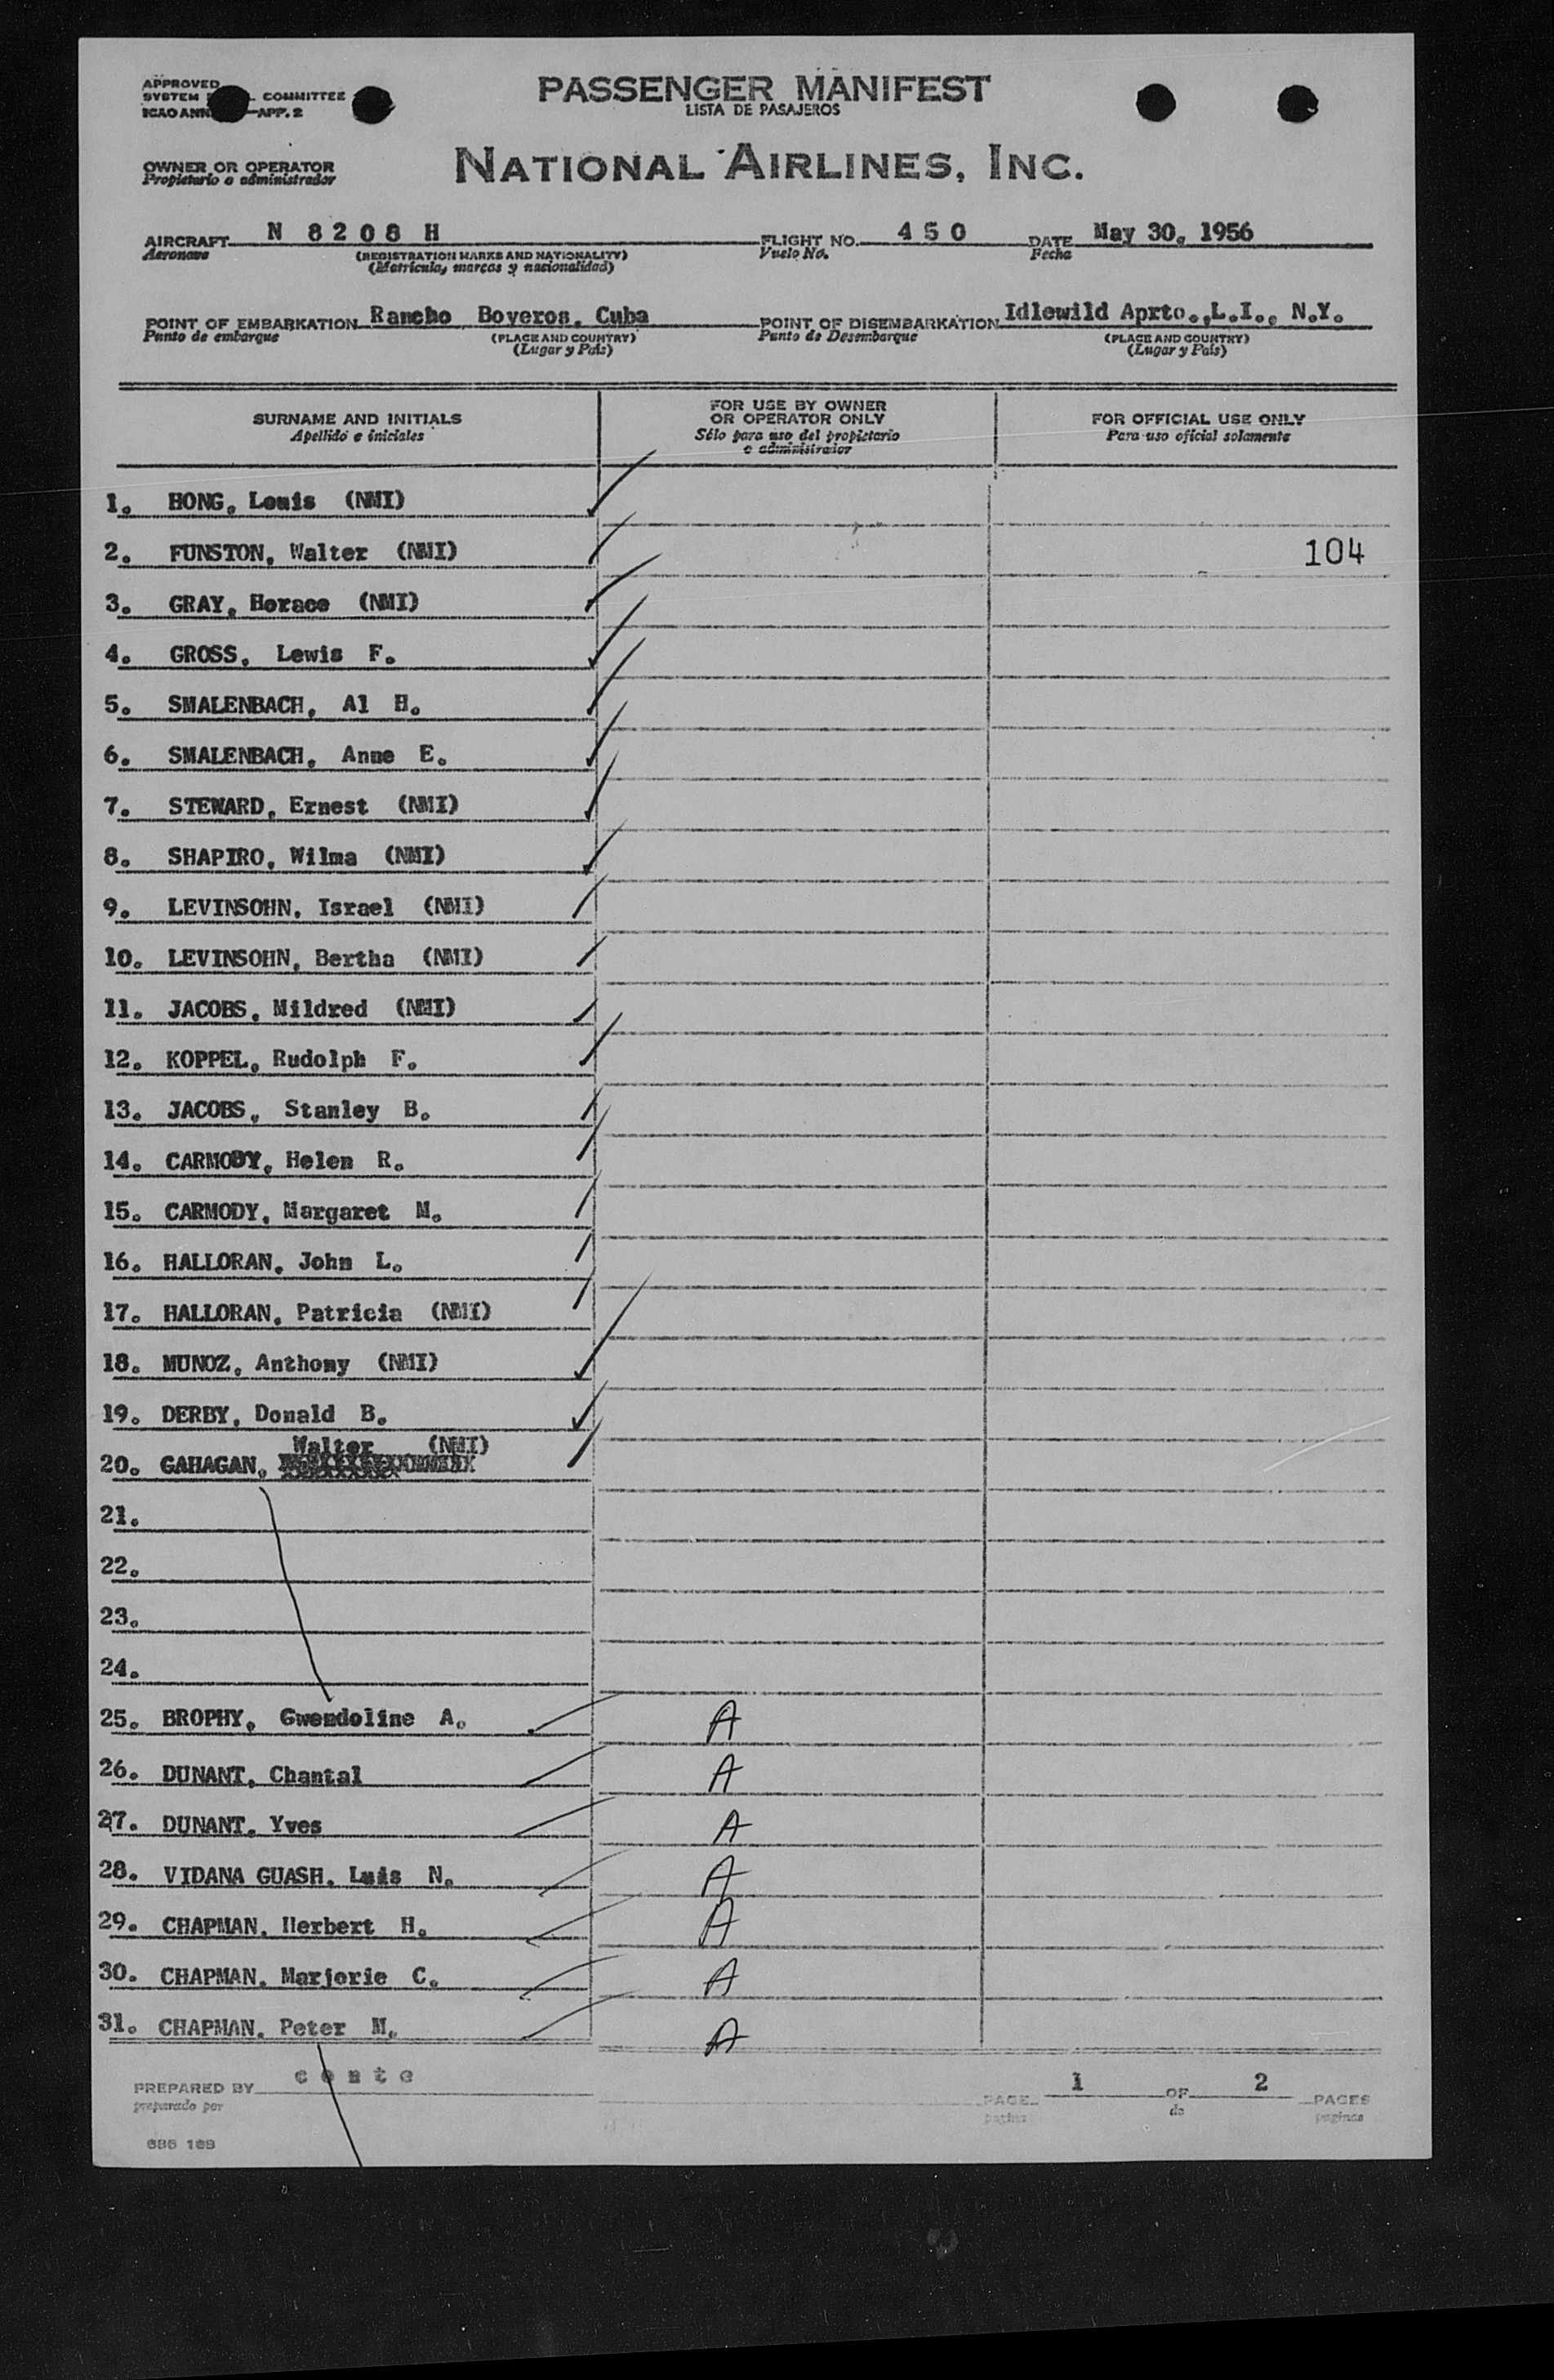 APPROVED
SYSTEM COMMITTEE
ICAO ANN APP. 2
PASSENGER MANIFEST
LISTA DE PASAJEROS
OWNER OR OPERATOR
Propietario o administrador
NATIONAL AIRLINES, INC.
AIRCRAFT N 8 2 0 8 H FLIGHT NO. 4 5 0 DATE May 30, 1956
Aeronave (REGISTRATION MARKS AND NATIONALITY) Vuelo No. Fecha
(Matricula, marcas y nacionalidad)
POINT OF EMBARKATION Rancho Boyeros, Cuba POINT OF DISEMBARKATION Idlewild Aprto.,L.I., N.Y.
Punto de embarque (PLACE AND COUNTRY) Punto de Desembarque (PLACE AND COUNTRY)
(Lugar y País) (Lugar y País)
SURNAME AND INITIALS FOR USE BY OWNER OR OPERATOR ONLY FOR OFFICIAL USE ONLY
Apellido e iniciales Sólo para uso del propietario o administrador Para uso oficial solamente
1. HONG, Louis (NMI)
2. FUNSTON, Walter (NMI) 104
3. GRAY, Horace (NMI)
4. GROSS, Lewis F.
5. SMALENBACH, Al H.
6. SMALENBACH, Anne E.
7. STEWARD, Ernest (NMI)
8. SHAPIRO, Wilma (NMI)
9. LEVINSOHN, Israel (NMI)
10. LEVINSOHN, Bertha (NMI)
11. JACOBS, Mildred (NMI)
12. KOPPEL, Rudolph F.
13. JACOBS, Stanley B.
14. CARMODY, Helen R.
15. CARMODY, Margaret M.
16. HALLORAN, John L.
17. HALLORAN, Patricia (NMI)
18. MUNOZ, Anthony (NMI)
19. DERBY, Donald B.
20. GAHAGAN, Walter (NMI)
21.
22.
23.
24.
25. BROPHY, Gwendoline A. A
26. DUNANT, Chantal A
27. DUNANT, Yves A
28. VIDANA GUASH, Luis N. A
29. CHAPMAN, Herbert H. A
30. CHAPMAN, Marjorie C. A
31. CHAPMAN, Peter M. A
PREPARED BY c o n t e PAGE 1 OF 2 PAGES
preparado por pagina de paginas